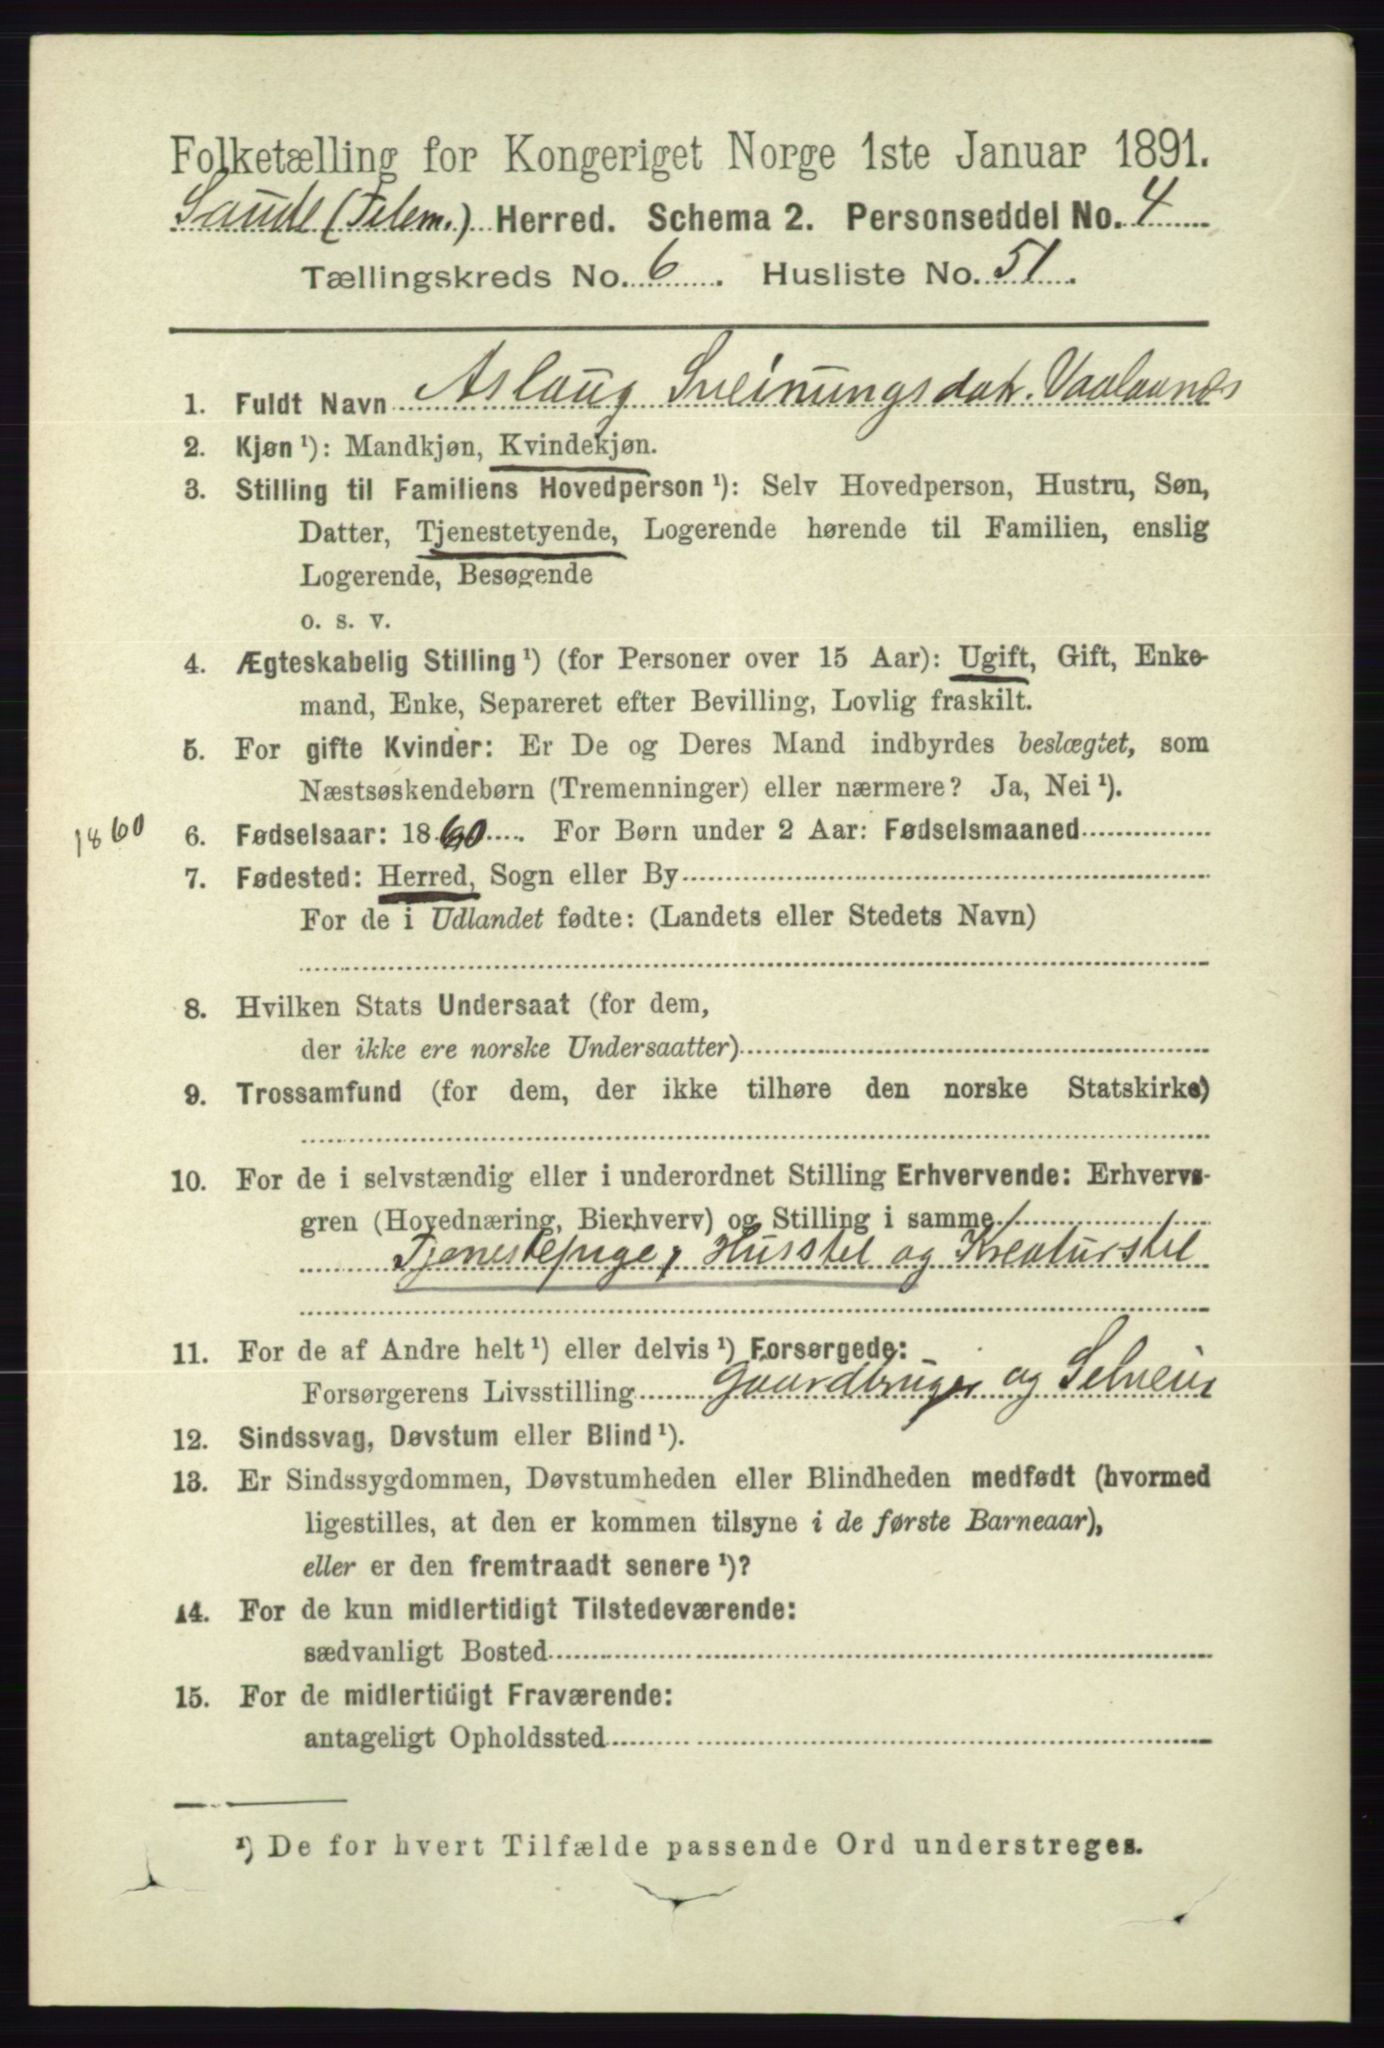 Folketælling for Kongeriget Norge 1ste Januar 1891.
Saude (Telem.) Herred. Schema 2. Personseddel No. 4
Tællingskreds No. 6. Husliste No. 51.
1. Fuldt Navn Aslaug Sveinungsdat. Vaalaanes
2. Kjøn ¹): Mandkjøn, Kvindekjøn.
3. Stilling til Familiens Hovedperson ¹): Selv Hovedperson, Hustru, Søn,
Datter, Tjenestetyende, Logerende hørende til Familien, enslig
Logerende, Besøgende
o. s. v.
4. Ægteskabelig Stilling ¹) (for Personer over 15 Aar): Ugift, Gift, Enke-
mand, Enke, Separeret efter Bevilling, Lovlig fraskilt.
5. For gifte Kvinder: Er De og Deres Mand indbyrdes beslægtet, som
Næstsøskendebørn (Tremenninger) eller nærmere? Ja, Nei ¹).
1860 6. Fødselsaar: 1860. For Børn under 2 Aar: Fødselsmaaned
7. Fødested: Herred, Sogn eller By
For de i Udlandet fødte: (Landets eller Stedets Navn)
8. Hvilken Stats Undersaat (for dem,
der ikke ere norske Undersaatter)
9. Trossamfund (for dem, der ikke tilhøre den norske Statskirke)
10. For de i selvstændig eller i underordnet Stilling Erhvervende: Erhvervs-
gren (Hovednæring, Bierhverv) og Stilling i samme
Tjenestepige, Husstel og Kreaturstel
11. For de af Andre helt ¹) eller delvis ¹) Forsørgede:
Forsørgerens Livsstilling Gaardbruger og Selveier
12. Sindssvag, Døvstum eller Blind ¹).
13. Er Sindssygdommen, Døvstumheden eller Blindheden medfødt (hvormed
ligestilles, at den er kommen tilsyne i de første Barneaar),
eller er den fremtraadt senere ¹)?
14. For de kun midlertidigt Tilstedeværende:
sædvanligt Bosted
15. For de midlertidigt Fraværende:
antageligt Opholdssted
¹) De for hvert Tilfælde passende Ord understreges.